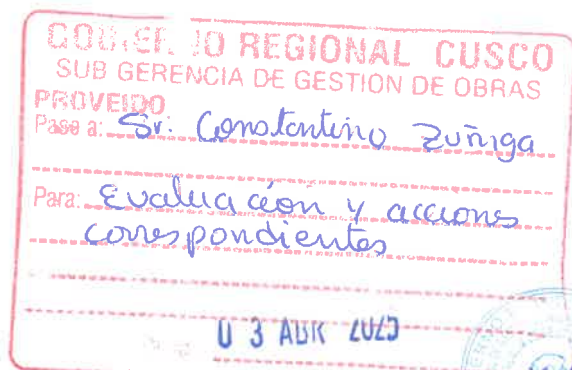 GOBIERNO REGIONAL CUSCO
SUB GERENCIA DE GESTION DE OBRAS
PROVEIDO
Pase a: Sr. Constantino Zuñiga
Para: Evaluación y acciones
correspondientes
03 ABR 2025